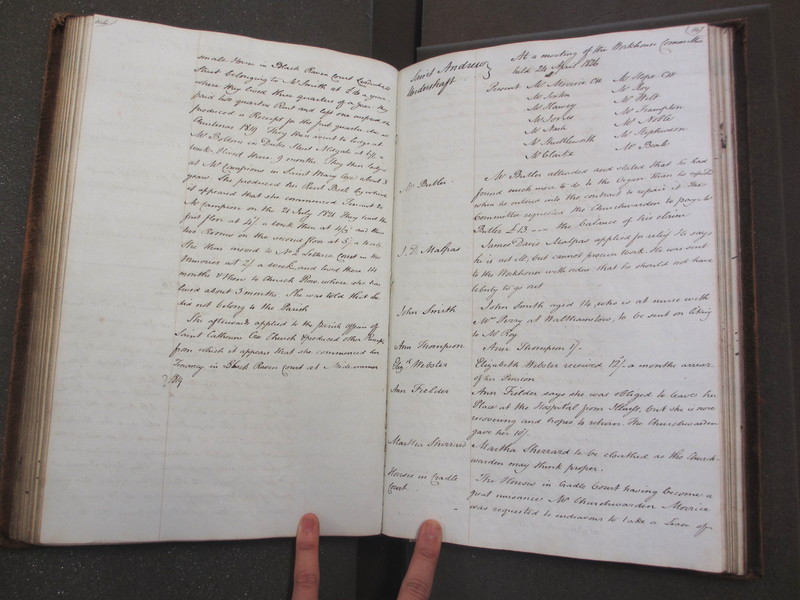 small House in Black Raven Court Leadenhall
Street belonging to Mr Smith at £ a year
where they lived three quarters of a year he
paid two quarters Rent and left one unpaid
produced a Receipt for the first quarter due at
Christmas 1819 They then went to lodge at
Mr Bottom in Dukes Street Aldgate at 4/ a
week & lived there 9 months They then lodged
at Mr Campions in Saint Mary Axe about 3
years She produced her Rent Book by which
it appeared that she commenced Tenant to
Mr Campion on the 21 July 1821 They had the
first floor at 4/ a week then at 4/3 and then
two Rooms on the second floor at 5/ a week
She then moved to No 2 Court in the
Minories at 2/ a week and lived there 14
months & then to Church Row, where she has
lived about 3 months She was told that she
did not belong to the Parish
She afterwards applied to the parish officers of
Saint Catharine Cree Church & produced other Receipts
from which it appears that she commenced her
Tenancy in Black Raven Court at Midsummer
1819
Saint Andrew
Undershaft
At a meeting of the Workhouse Committee
held 24 April 1826
Present Mr Morrice CW Mr Hope CW
Mr Roy
Mr Harvey Mr Holt
Mr Jones Mr Frampton
Mr Nash Mr Noble
Mr Shuttleworth Mr Stephenson
Mr Clarke Mr Beck
Mr Butler
Mr Butler attended and stated that he had
found much more to do to the Organ than he expected
when he entered into the contract to repair it The
Committee requested the Churchwarden to pay Mr
Butler £13 the balance of his claim
J. D. Malpas
James Davis Malpas applied for relief He says
he is not ill, but cannot procure work. He was sent
to the Workhouse with orders that he should not have
liberty to go out
John Smith
John Smith aged 14, who is at nurse with
Mrs Perry at Walthamstow, to be sent on liking
to Mr Roy
Ann Thompson
Ann Thompson 1/-
Elizth Webster
Elizabeth Webster received 12/- a months arrear
of her Pension
Ann Fielder
Ann Fielder says she was obliged to leave her
Place at the Hospital from Illness, but she is now
recovering and hopes to return. The Churchwarden
gave her 10/-
Martha Sherrard
Martha Sherrard to be cloathed as the Church-
warden may think proper.
Houses in Cradle
Court
The Houses in Cradle Court having become a
great nuisance Mr Churchwarden Morrice
was requested to endeavour to take a Lease of